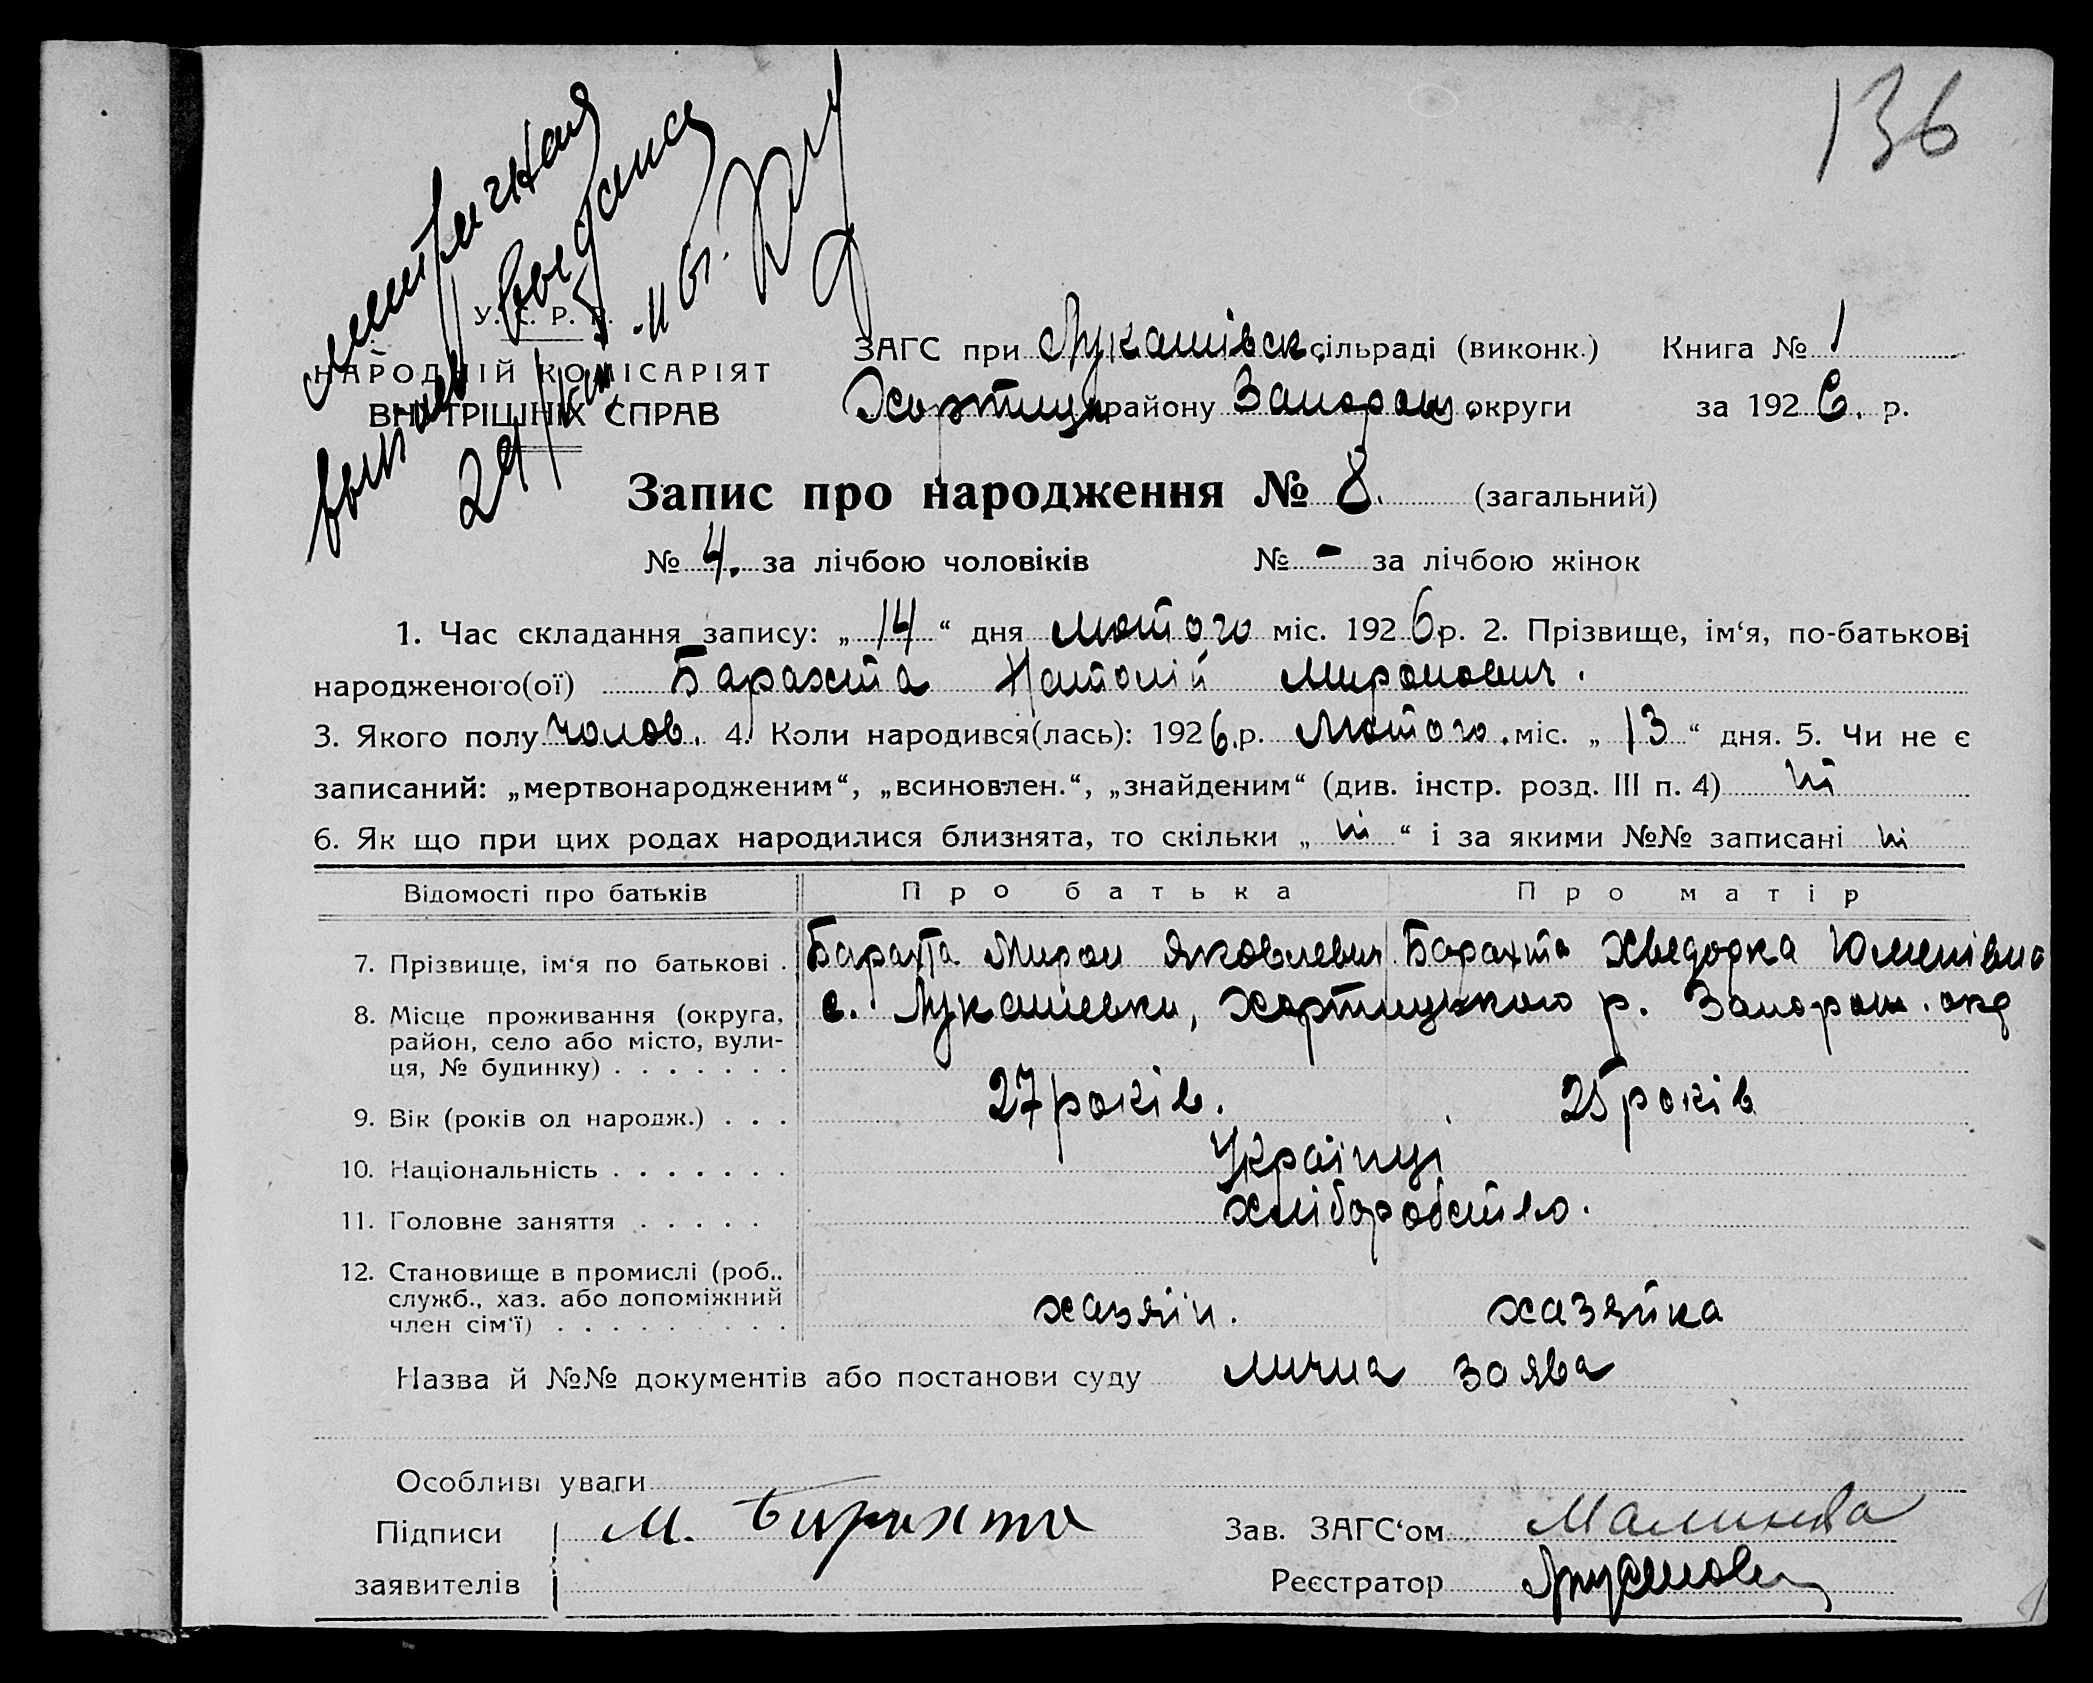 136
метричная
выпись выдана
29/
У. С. Р. Р.
НАРОДНІЙ КОМІСАРІЯТ
ВНУТРІШНІХ СПРАВ
ЗАГС при Лукашівск. сільраді (виконк.) Книга № 1
Хортицьк району Запорож. округи за 1926. р.
Запис про народження № 8. (загальний)
№ 4. за лічбою чоловіків № - за лічбою жінок
1. Час складання запису: „14“ дня лютого міс. 1926 р. 2. Прізвище, ім‘я, по-батькові
народженого(ої) Барахта Натолій Миронович.
3. Якого полу чолов. 4. Коли народився(лась): 1926.р. Лютого. міс. „13“ дня. 5. Чи не є
записаний: „мертвонародженим“, „всиновлен.“, „знайденим“ (див. інстр. розд. III п. 4) ні
6. Як що при цих родах народилися близнята, то скільки „ні“ і за якими №№ записані ні
Відомості про батьків Про батька Про матір
7. Прізвище, ім‘я по батькові . Барахта Мирон Яковлевич Барахта Хведорка Юменівна
8. Місце проживання (округа, с. Лукашевки, Хортицького р. Запорож. окр
район, село або місто, вули-
ця, № будинку) . . . . . . .
9. Вік (років од народж.) . . . 27 років. 25 років
10. Національність . . . . . . . Українці
11. Головне заняття . . . . . хліборобство.
12. Становище в промислі (роб..
служб., хаз. або допоміжний
член сім‘ї) . . . . . . . . . хазяїн. хазяйка
Назва й №№ документів або постанови суду лична заява
Особливі уваги
Підписи М. Барахта Зав. ЗАГС‘ом
заявителів Реєстратор